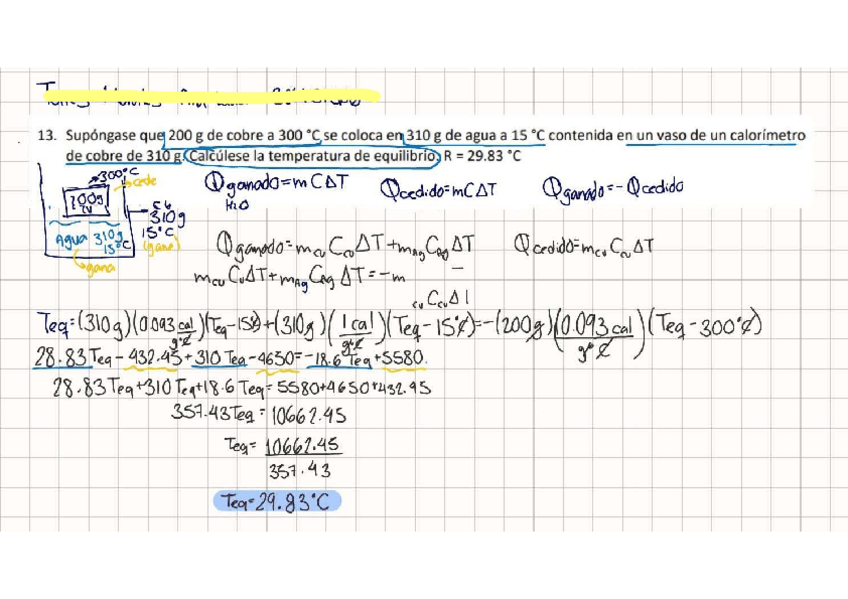 13. Supóngase que 200 g de cobre a 300 °C se coloca en 310 g de agua a 15 °C contenida en un vaso de un calorímetro
de cobre de 310 g. Calcúlese la temperatura de equilibrio. R = 29.83 °C
300°C
cede
200g
Cu
310g
15°C
(gana)
Agua 310g
15°C
gana
Qganado=mCΔT
H₂O
Qcedido=mCΔT
Qganado=-Qcedido
Qganado=mcuCcuΔT+mAgCAgΔT
Qcedido=mcuCcuΔT
mcuCcuΔT+mAgCAgΔT=-m
cuCcuΔT
Teq=(310g)(0.093 cal/g°C)(Teq-15°C)+(310g)(1cal/g°C)(Teq-15°C)=-(200g)(0.093 cal/g°C)(Teq-300°C)
28.83Teq-432.45+310Teq-4650=-18.6Teq+5580.
28.83Teq+310Teq+18.6Teq=5580+4650+432.45
357.43Teq=10662.45
Teq=10662.45
357.43
Teq=29.83°C